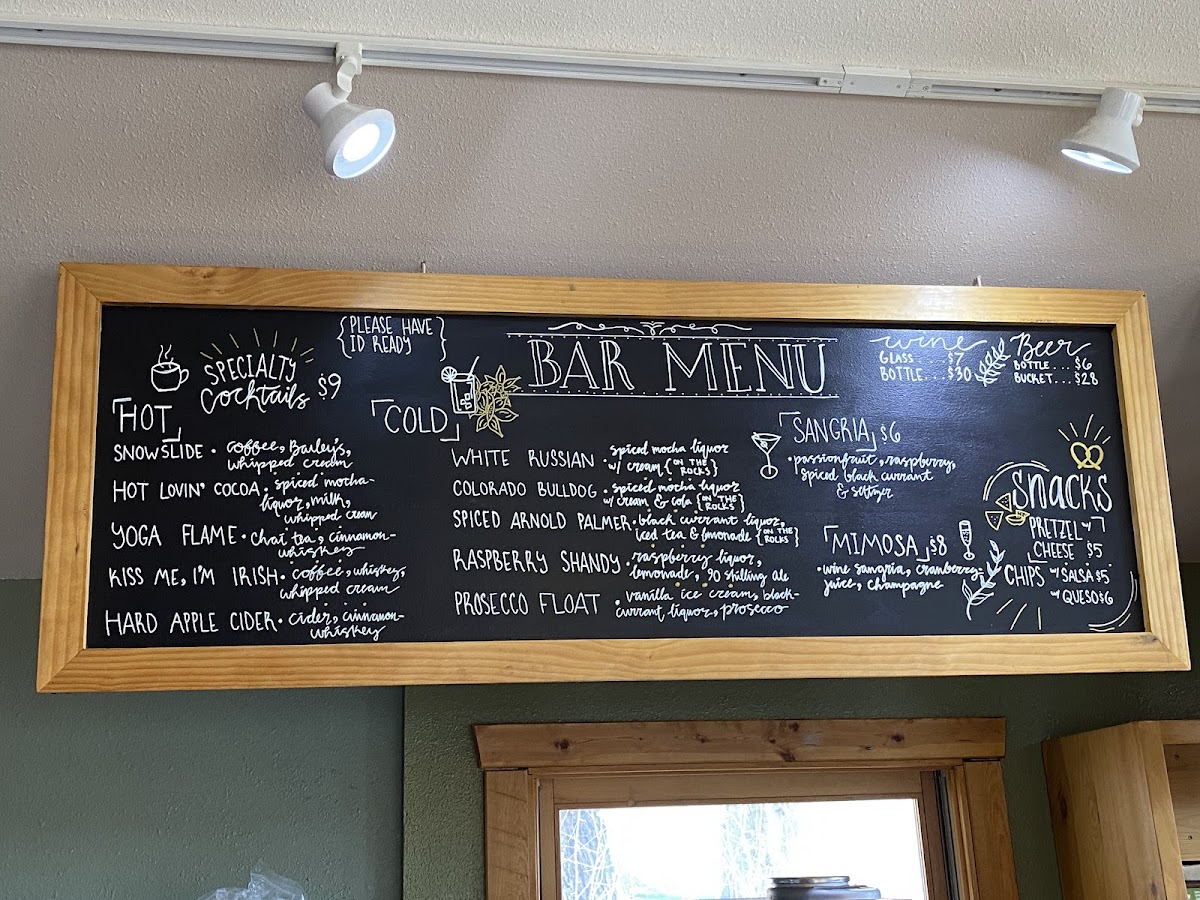 {PLEASE HAVE
ID READY}
BAR MENU
SPECIALTY
Cocktails $9
HOT
SNOWSLIDE • coffee, Bailey's,
whipped cream
HOT LOVIN' COCOA • spiced mocha-
liquor, milk,
whipped cream
YOGA FLAME • chai tea, cinnamon-
whiskey
KISS ME, I'M IRISH • coffee, whiskey,
whipped cream
HARD APPLE CIDER • cider, cinnamon-
whiskey
COLD
WHITE RUSSIAN • spiced mocha liquor
w/ cream {ON THE
ROCKS}
COLORADO BULLDOG • spiced mocha liquor
w/ cream & cola {ON THE
ROCKS}
SPICED ARNOLD PALMER • black currant liquor,
iced tea & lemonade {ON THE
ROCKS}
RASPBERRY SHANDY • raspberry liquor,
lemonade, 90 shilling ale
PROSECCO FLOAT • vanilla ice cream, black-
currant liquor, prosecco
wine
GLASS . $7
BOTTLE... $30
Beer
BOTTLE... $6
BUCKET... $28
SANGRIA $6
• passionfruit, raspberry,
spiced black currant
& seltzer
MIMOSA $8
• wine sangria, cranberry-
juice, champagne
Snacks
PRETZEL w/
CHEESE $5
CHIPS w/ SALSA $5
w/ QUESO $6